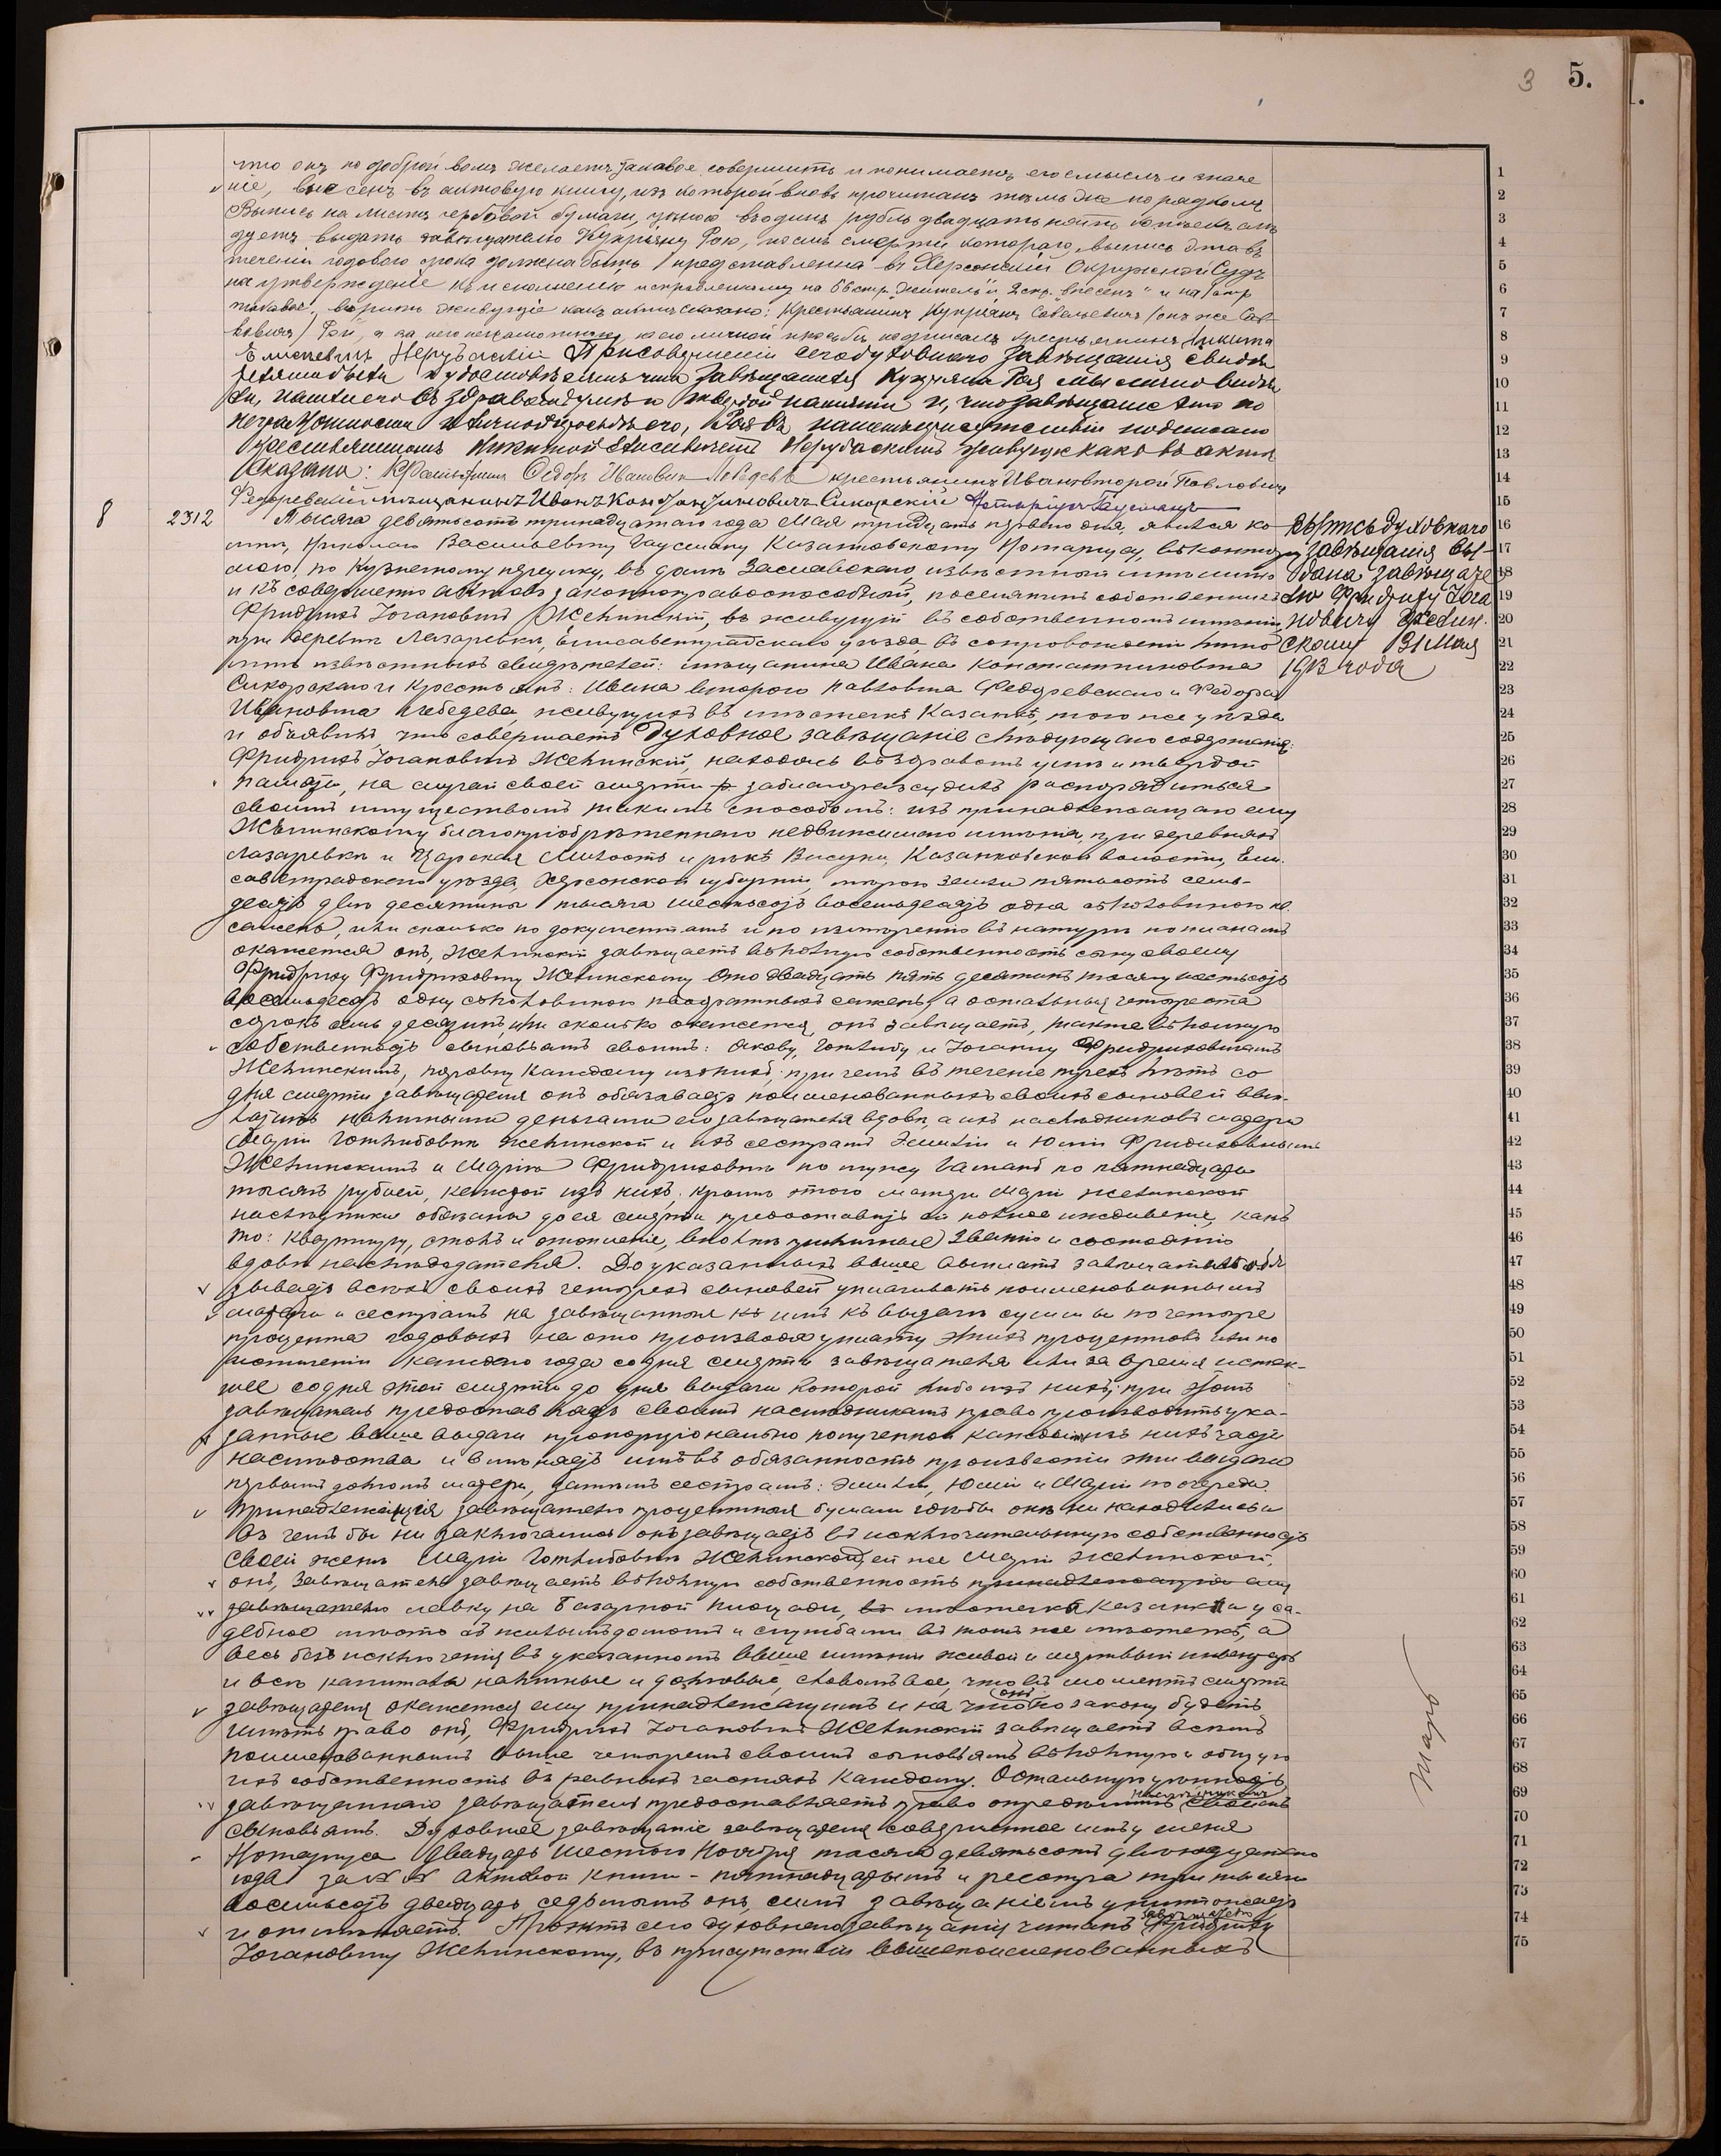 3 5.
что онъ по доброй волѣ желаетъ таковое совершить и понимаетъ его смыслъ и значе
ніе, внесенъ въ актовую книгу, изъ которой вновь прочитанъ тѣмъ же порядкомъ
Выпись на листѣ гербовой бумаги, цѣною въ одинъ рубль двадцать пять копѣекъ слѣ
дуетъ выдать завѣщателю Купріяну Рою, послѣ смерти котораго, выпись эта въ
теченіи годового срока должна быть представлена въ Херсонскій Окружной Судъ
на утвержденіе къ исполненію
таковое, вѣрить. живущіе какъ въ актѣ сказано: Крестьянинъ Купріянъ Савельевичъ /онъ же Сав
вовичъ/ Рой, а за него неграмотнаго по его личной просьбѣ подписалъ крестьянинъ Никита
Елисеевичъ При совершеніи сего духовнаго завѣщанія свидѣ
телями были и удостовѣряемъ что завѣщателя Купріяна Роя мы лично видѣ
ли, нашли его въ здравомъ умѣ и твердой памяти и, что завѣщаніе это по
неграмотности и личной просьбѣ его, Роя въ нашемъ присутствіи подписано
крестьяниномъ Никитой Елисеевичемъ живущіе какъ въ актѣ
сказано: Крестьянинъ Федоръ Ивановичъ Лебедевъ крестьянинъ Иванъ второй Павловичъ
Федоревскій мѣщанинъ Иванъ Константиновичъ Сикорскій Нотаріусъ Гаусманъ
8 2312 Тысяча девятьсотъ тринадцатаго года Мая тридцать перваго дня, явился ко
мнѣ, Николаю Васильевичу Гаусману Казанковскому Нотаріусу, въ контору
мою, по Кузнечному переулку, въ домѣ Заславскаго, извѣстный мнѣ лично
и къ совершенію актовъ законноправоспособный, поселянинъ собственникъ
Фридрихъ Іогановичъ Желинскій, живущій въ собственномъ имѣніи
при деревнѣ Лазаревкѣ, Елисаветградскаго уѣзда, въ сопровожденіи лично
мнѣ извѣстныхъ свидѣтелей: мѣщанина Ивана Константиновича
Сикорскаго и крестьянъ: Ивана второго Павловича Федоревскаго и Федора
Ивановича Лебедева, живущихъ въ мѣстечкѣ Казанкѣ, того же уѣзда
и объявилъ, что совершаетъ духовное завѣщаніе слѣдующаго содержанія:
Фридрихъ Іогановичъ Желинскій, находясь въ здравомъ умѣ и твердой
памяти, на случай своей смерти заблагоразсудилъ распорядиться
своимъ имуществомъ такимъ способомъ: изъ принадлежащаго ему
Желинскому благопріобрѣтеннаго недвижимаго имѣнія, при деревняхъ
Лазаревкѣ и Царская Милость и рѣкѣ Висуни, Казанковской волости, Ели-
саветградскаго уѣзда, Херсонской губерніи, мѣрою земли пятьсотъ семь-
десятъ двѣ десятины тысяча шестьсотъ восемьдесятъ одна съ половиною кв.
сажень, или сколько по документамъ и по измѣренію въ натурѣ по планамъ
окажется онъ, Желинскій завѣщаетъ въ полную собственность сыну своему
Фридриху Фридриховичу Желинскому сто двадцать пять десятинъ тысячу шестьсотъ
восемьдесятъ одну съ половиною квадратныхъ сажень, а остальныя четыреста
сорокъ семь десятинъ, или сколько окажется, онъ завѣщаетъ, также въ полную
собственность сыновьямъ своимъ: Якову, Готлибу и Іогану Фридриховичамъ
Желинскимъ, поровну каждому изъ нихъ; при чемъ въ теченіе трехъ лѣтъ со
дня смерти завѣщателя онъ обязываетъ поименованныхъ своихъ сыновей вып-
латить наличными деньгами его завѣщателя вдовѣ, а ихъ наслѣдниковъ матери
Маріи Готлибовнѣ Желинской и ихъ сестрамъ Эмиліи и Юліи Фридриховнымъ
Желинскимъ и Маріи Фридриховнѣ по мужу по пятнадцати
тысячъ рублей, каждой изъ нихъ; кромѣ этого матери Маріи Желинской
наслѣдники обязаны до ея смерти предоставить ей полное иждивеніе, какъ
то: квартиру, столъ и отопленіе, вполнѣ приличное званію и состоянію
вдовы наслѣдодателя. До указанныхъ выше выплатъ завѣщатель обя
зываетъ всѣхъ своихъ четырехъ сыновей уплачивать поименованнымъ
матери и сестрамъ на завѣщанныя имъ къ выдачѣ суммы по четыре
процента годовыхъ на сто производя уплату этихъ процентовъ или по
истеченіи каждаго года со дня смерти завѣщателя или за время истек-
шее со дня этой смерти до дня выдачи которой либо изъ нихъ; при этомъ
завѣщатель предоставляетъ своимъ наслѣдникамъ право производить ука-
занные выше выдачи пропорціонально полученной каждымъ изъ нихъ части
наслѣдства и вмѣняетъ имъ въ обязанность произвести эти выдачи
первымъ долгомъ матери, затѣмъ сестрамъ: Эмиліи, Юліи и Маріи по очереди.
Принадлежащія завѣщателю процентныя бумаги гдѣ бы онѣ ни находились и
въ чемъ бы ни заключались онъ завѣщаетъ въ исключительную собственность
своей женѣ Маріи Готлибовнѣ Желинской, ей же Маріи Желинской,
онъ, завѣщатель завѣщаетъ въ полную собственность принадлежащую ему
завѣщателю лавку на базарной площади, въ мѣстечкѣ Казанкѣ и уса-
дебное мѣсто съ жилымъ домомъ и службами въ томъ же мѣстечкѣ, а
весь безъ исключенія въ указанномъ выше имѣніи живой и мертвый инвентарь
и всѣ капиталы наличные и долговые, словомъ все, что въ моментъ смерти
завѣщателя окажется ему принадлежащимъ и на что онъ по закону будетъ
имѣть право онъ, Фридрихъ Іогановичъ Желинскій завѣщаетъ всѣмъ
поименованнымъ выше четыремъ своимъ сыновьямъ въ полную и общую
ихъ собственность въ равныхъ частяхъ каждому. Остальную цѣнность
завѣщаннаго завѣщатель предоставляетъ право опредѣлить своимъ
сыновьямъ. Духовное завѣщаніе завѣщателя совершенное имъ у меня
Нотаріуса двадцать шестого Ноября тысяча девятьсотъ двѣнадцатаго
года за №№ актовой книги - пятнадцатымъ и реестра три тысячи
восемьсотъ двадцать седьмымъ онъ, симъ завѣщаніемъ уничтожаетъ
и отмѣняетъ. Проектъ сего духовнаго завѣщанія читанъ завѣщателю Фридриху
Іогановичу Желинскому, въ присутствіи вышепоименованныхъ
Выпись духовнаго
завѣщанія вы-
дана завѣщате
лю Фридриху Іога
новичу Желин-
скому 31 Мая
1913 года
1
2
3
4
5
6
7
8
9
10
11
12
13
14
15
16
17
18
19
20
21
22
23
24
25
26
27
28
29
30
31
32
33
34
35
36
37
38
39
40
41
42
43
44
45
46
47
48
49
50
51
52
53
54
55
56
57
58
59
60
61
62
63
64
65
66
67
68
69
70
71
72
73
74
75